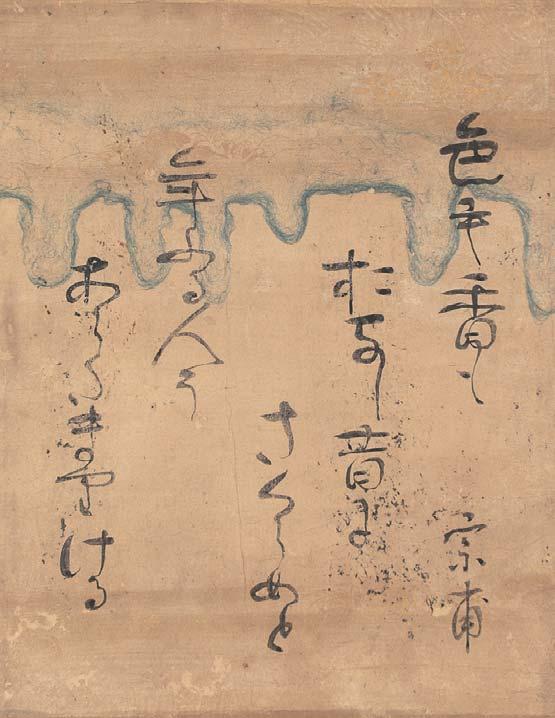 色も香も
おなし昔に
さくらめと
年ふる人そ
あらたまりける
宗甫